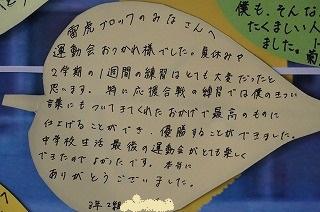 雷虎ブロックのみなさんへ
運動会おつかれ様でした。夏休みや
2学期の1週間の練習はとても大変だったと
思います。特に応援合戦の練習では僕のきつい
言葉にもついてきてくれたおかげで最高のものに
仕上げることができ、優勝することができました。
中学校生活最後の運動会がとても楽しく
できたのでよかったです。本当に
ありがとうございました。
3年2組
僕も、そんな
たくましい人